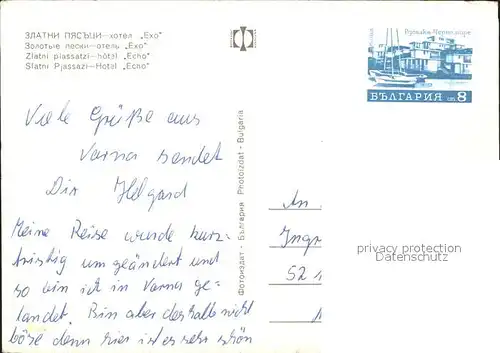 ЗЛАТНИ ПЯСЪЦИ—хотел „Ехо"
Золотые пески—отель „Ехо"
Zlatni piassatzi—hôtel „Echo"
Slatni Pjassazi—Hotel „Echo"
Русалка-Черноморие
БЪЛГАРИЯ ст. 8
Viele Grüße aus
Varna sendet
Dir Helgard
Meine Reise wurde kurz-
fristig um geändert und
so bin ich in Varna ge-
landet. Bin aber deshalb nicht
böse denn hier ist es sehr schön
Фотоиздат - България Photoizdat - Bulgaria
An
Ingr
52
privacy protection
Datenschutz